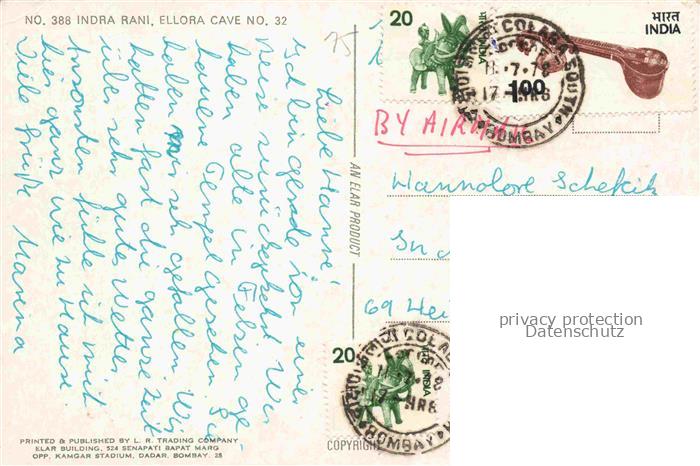 NO. 388 INDRA RANI, ELLORA CAVE NO. 32
75
Liebe Hanne,
Ich bin gerade von einer
Reise zurückgekehrt. Wir
haben alle in Felsen ge-
hauene Tempel gesehen. Sie
haben mir sehr gefallen. Wir
hatten fast die ganze Zeit
sehr gutes Wetter.
Ansonsten fühle ich mich
hier ganz wie zu Hause.
Viele Grüße Marena
PRINTED & PUBLISHED BY L. R. TRADING COMPANY
ELAR BUILDING, 524 SENAPATI BAPAT MARG
OPP. KAMGAR STADIUM, DADAR, BOMBAY. 28
AN ELAR PRODUCT
COPYRIGHT
20
भारत INDIA
भारत
INDIA
1.00
COLABA SOUTH
BOMBAY
BY AIR
Hannolore
69 Hei
privacy protection
Datenschutz
20
भारत INDIA
COLABA
BOMBAY